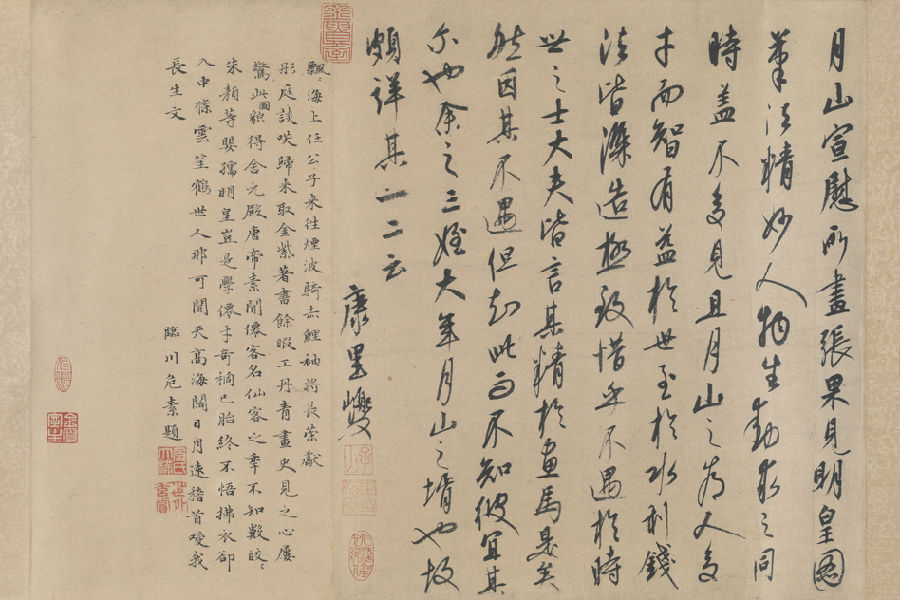 月山宣慰所畫張果見明皇圖
筆法精妙人物生動求之同
時盖不多見且月山之為人多
才而智有益於世至於水利錢
法皆深造極致惜乎不遇於時
世之士大夫皆言其精於畫馬是矣
然因其不遇但知此而不知彼宜其
尒也余之三姪大年月山之壻也故
頗詳其一二云
康里巎
飄〻海上任公子來往煙波騎赤鯉袖將長策獻
彤庭談咲歸來取金紫著書餘暇工丹青畫史見之心屢
驚此圖貌得含元殿唐帝素聞僊客名仙客之年不知數皎〻
朱顏等嬰孺明皇豈是學僊才奇禍已胎終不悟拂衣卻
入中條雲笙鶴世人那可聞天高海闊日月遠稽首我
長生文
臨川危素題